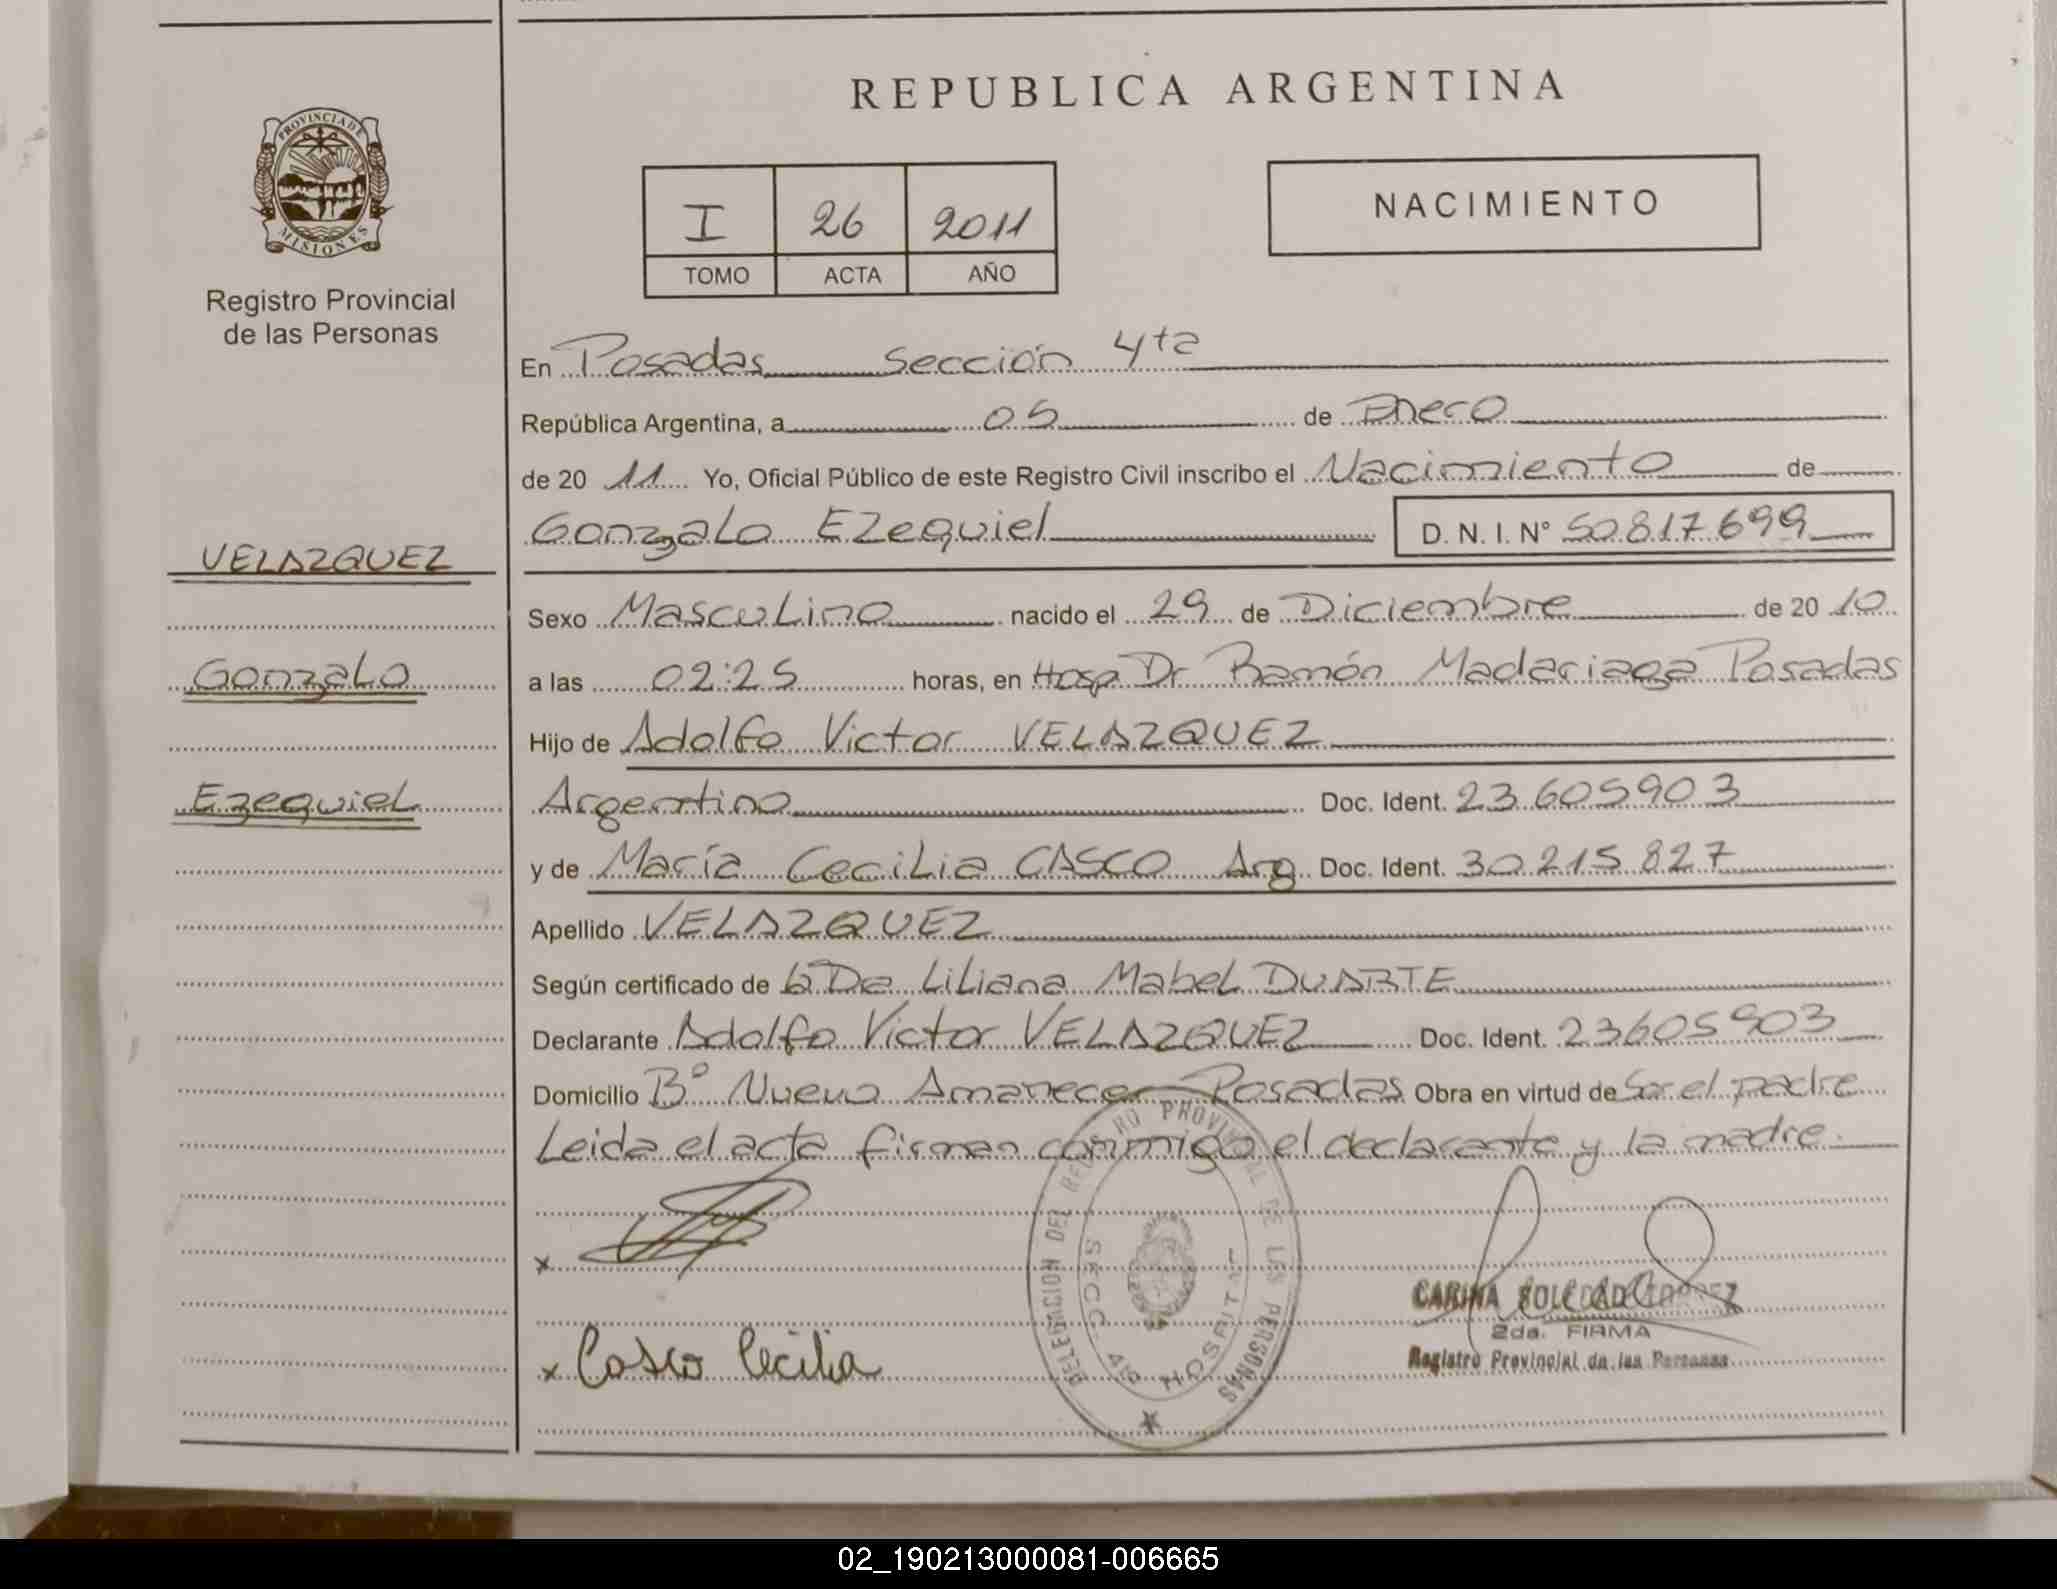 REPUBLICA ARGENTINA
PROVINCIA DE
MISIONES
Registro Provincial
de las Personas
I 26 2011
TOMO ACTA AÑO
NACIMIENTO
En Posadas Sección 4ta
República Argentina, a 05 de Enero
de 20 11 Yo, Oficial Público de este Registro Civil inscribo el Nacimiento de
Gonzalo Ezequiel D. N. I. Nº 50817699
VELAZQUEZ
Gonzalo
Ezequiel
Sexo Masculino nacido el 29 de Diciembre de 20 10
a las 02:25 horas, en Hosp Dr Ramón Madariaga Posadas
Hijo de Adolfo Victor VELAZQUEZ
Argentino Doc. Ident. 23605903
y de María Cecilia CASCO Arg Doc. Ident. 30215827
Apellido VELAZQUEZ
Según certificado de la Dra Liliana Mabel DUARTE
Declarante Adolfo Victor VELAZQUEZ Doc. Ident. 23605903
Domicilio Bº Nuevo Amanecer Posadas Obra en virtud de Ser el padre
Leida el acta firman conmigo el declarante y la madre.
x
x Casco Cecilia
DELEGACION DEL REGISTRO PROVINCIAL DE LAS PERSONAS
SECC. 4ta HOSPITAL
CARINA SOLEDAD
2da. FIRMA
Registro Provincial de las Personas
02_190213000081-006665